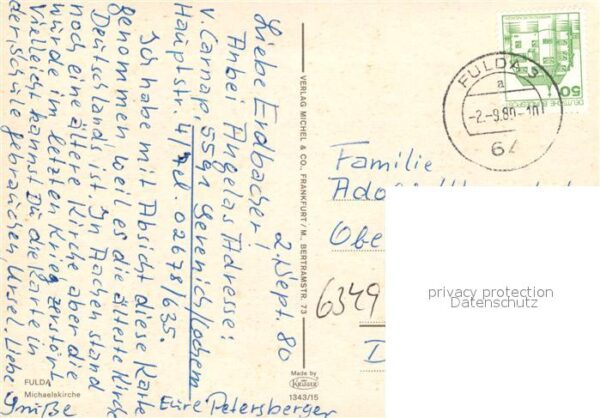 2. Sept. 80
Liebe Erdbacher!
Anbei Angelas Adresse:
v. Carnap, 559 Serenich/Cochem
Hauptstr. 4/Tel. 02678/635.
Ich habe mit Absicht diese Karte
genommen weil es die älteste Kirche
Deutschlands ist. In Aachen stand
noch eine ältere Kirche aber die
würde im letzten Krieg zerstört
Vielleicht kannst Du die Karte in
der Schule gebrauchen, Ursel. Liebe
Grüße
Eure Petersberger
FULDA
Michaelskirche
VERLAG MICHEL & CO., FRANKFURT/M., BERTRAMSTR. 73
Made by
KRÜGER
1343/15
FULDA
a
-2.-9.80-10
64
50
DEUTSCHE BUNDESPOST
Familie
Obe
6349
D
privacy protection
Datenschutz